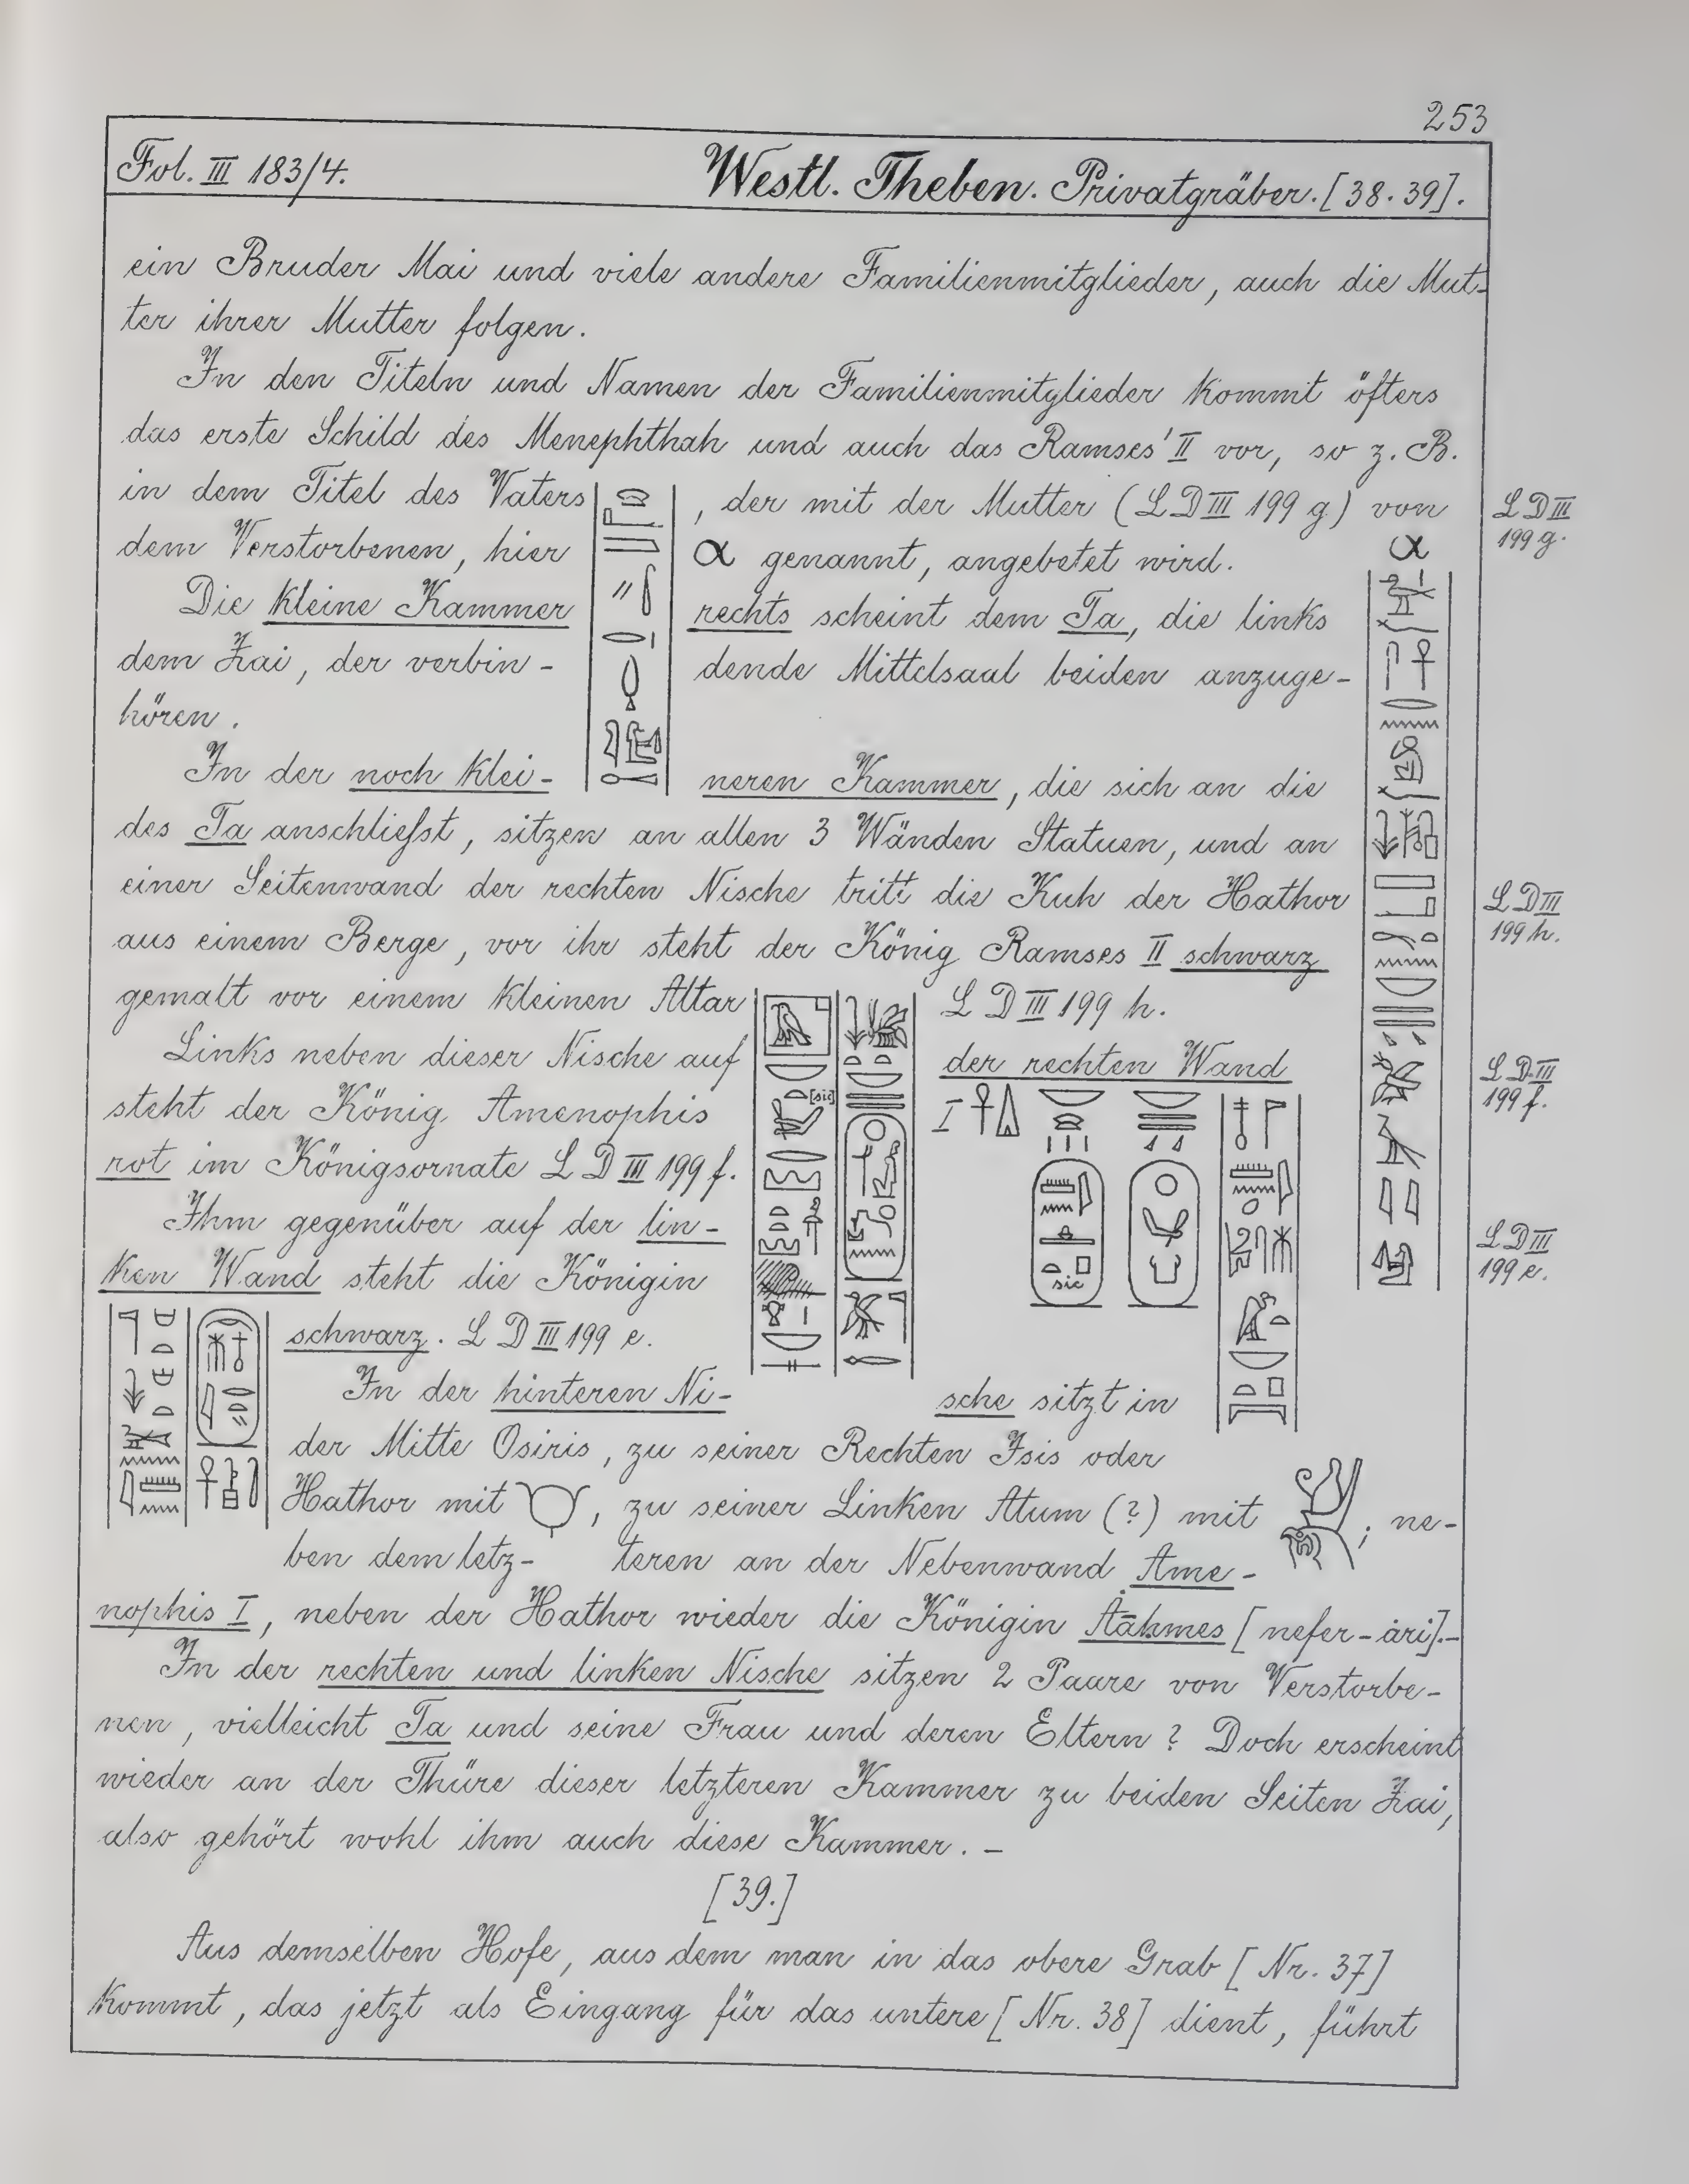 253
Fol. III 183/4. Westl. Theben. Privatgräber. [38. 39].
ein Bruder Mai und viele andere Familienmitglieder, auch die Mut-
ter ihrer Mutter folgen.
In den Titeln und Namen der Familienmitglieder kommt öfters
das erste Schild des Menephthah und auch das Ramses' II vor, so z. B.
in dem Titel des Vaters , der mit der Mutter (L D III 199 g) von
L D III
199 g.
dem Verstorbenen, hier α genannt, angebetet wird.
α
Die kleine Kammer rechts scheint dem Ta, die links
dem Zai, der verbin- dende Mittelsaal beiden anzuge-
hören.
In der noch klei- neren Kammer, die sich an die
des Ta anschließst, sitzen an allen 3 Wänden Statuen, und an
einer Seitenwand der rechten Nische tritt die Kuh der Hathor
L D III
199 h.
aus einem Berge, vor ihr steht der König Ramses II schwarz
gemalt vor einem kleinen Altar L D III 199 h.
Links neben dieser Nische auf der rechten Wand
L D III
199 f.
steht der König Amenophis I
[sic]
rot im Königsornate L D III 199 f.
Ihm gegenüber auf der lin-
L D III
199 e.
ken Wand steht die Königin
sic
schwarz. L D III 199 e.
In der hinteren Ni- sche sitzt in
der Mitte Osiris, zu seiner Rechten Isis oder
Hathor mit , zu seiner Linken Atum (?) mit ; ne-
ben dem letz- teren an der Nebenwand Ame-
nophis I, neben der Hathor wieder die Königin Aāhmes [nefer-àri].-
In der rechten und linken Nische sitzen 2 Paare von Verstorbe-
nen, vielleicht Ta und seine Frau und deren Eltern? Doch erscheint
wieder an der Thüre dieser letzteren Kammer zu beiden Seiten Zai,
also gehört wohl ihm auch diese Kammer. -
[39.]
Aus demselben Hofe, aus dem man in das obere Grab [Nr. 37]
kommt, das jetzt als Eingang für das untere [Nr. 38] dient, führt